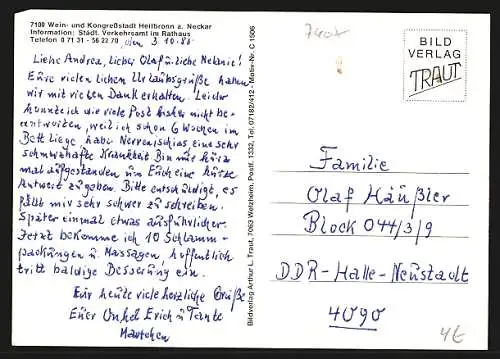 7100 Wein- und Kongreßstadt Heilbronn a. Neckar
Information: Städt. Verkehrsamt im Rathaus
Telefon 0 71 31 - 56 22 70
den 3.10.88
Liebe Andrea, lieber Olaf u. liebe Melanie!
Eure vielen lieben Urlaubsgrüße haben
wir mit vielen Dank erhalten. Leider
konnte ich die viele Post bisher nicht be-
antworten, weil ich schon 6 Wochen im
Bett liege, habe Nervenischias eine sehr
schmerzhafte Krankheit. Bin nur kurz
mal aufgestanden um Euch eine kurze
Antwort zu geben. Bitte entschuldigt, es
fällt mir sehr schwer zu schreiben.
Später einmal etwas ausführlicher.
Jetzt bekomme ich 10 Schlamm-
packungen u. Massagen, hoffentlich
tritt baldige Besserung ein.
Für heute viele herzliche Grüße
Euer Onkel Erich u. Tante
Martchen
Bildverlag Arthur L. Traut, 7063 Welzheim, Postf. 1332, Tel. 07182/412 · Bestell-Nr. C 1506
BILD
VERLAG
TRAUT
Familie
Olaf Häußler
Block 044/3/9
DDR-Halle-Neustadt
4090
4€